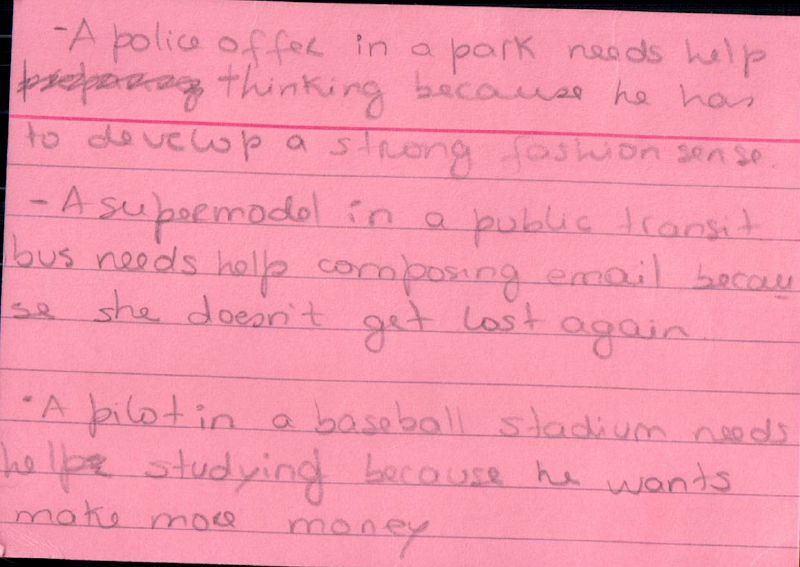 -A police offer in a park needs help
thinking because he has
to develop a strong fashion sense.
- A supermodel in a public transit
bus needs help composing email becau
se she doesn't get lost again.
- A pilot in a baseball stadium needs
help studying because he wants
make more money